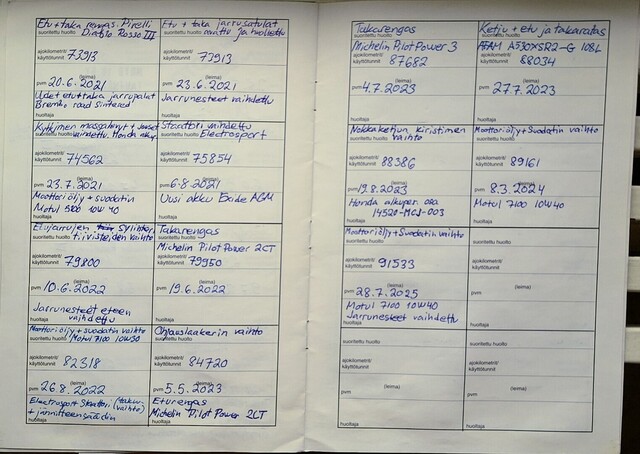 Etu + taka rengas. Pirelli
suoritettu huolto Diablo Rosso III
ajokilometrit/
käyttötunnit 73913
(leima)
pvm 20.6.2021
Uudet etu+taka jarrupalat
Brembo road Sintered
huoltaja
Etu + taka jarrusatulat
suoritettu huolto avattu ja huollettu
ajokilometrit/
käyttötunnit 73913
(leima)
pvm 23.6.2021
Jarrunesteet vaihdettu
huoltaja
Kytkimen
suoritettu huolto vaihdettu. Honda
ajokilometrit/
käyttötunnit 74562
(leima)
pvm 23.7.2021
Moottoriöljy + suodatin
Motul 5100 10W40
huoltaja
Staattori vaihdettu
suoritettu huolto Electrosport
ajokilometrit/
käyttötunnit 75854
(leima)
pvm 6.8.2021
Uusi akku Exide AGM
huoltaja
Etujarrujen sylinterin
suoritettu huolto tiivisteiden vaihto
ajokilometrit/
käyttötunnit 79800
(leima)
pvm 10.6.2022
Jarrunesteet eteen
huoltaja vaihdettu
Takarengas
suoritettu huolto
Michelin Pilot Power 2CT
ajokilometrit/
käyttötunnit 79950
(leima)
pvm 19.6.2022
huoltaja
Moottoriöljy + suodatin vaihto
suoritettu huolto Motul 7100 10W30
ajokilometrit/
käyttötunnit 82318
(leima)
pvm 26.8.2022
Electrosport Staattori (takuu-
vaihto)
huoltaja + jännitteensäädin
Ohjauslaakerin vaihto
suoritettu huolto
ajokilometrit/
käyttötunnit 84720
(leima)
pvm 5.5.2023
Eturengas
huoltaja Michelin Pilot Power 2CT
Takarengas
suoritettu huolto
Michelin Pilot Power 3
ajokilometrit/
käyttötunnit 87682
(leima)
pvm 4.7.2023
huoltaja
Ketju + etu ja takaratas
suoritettu huolto
AFAM A530XSR2-G 108L
ajokilometrit/
käyttötunnit 88034
(leima)
pvm 27.7.2023
huoltaja
Nokkaketjun kiristimen
suoritettu huolto vaihto
ajokilometrit/
käyttötunnit 88386
(leima)
pvm 19.8.2023
Honda alkuper. osa
14520-MCJ-003
huoltaja
Moottoriöljy + Suodatin vaihto
suoritettu huolto
ajokilometrit/
käyttötunnit 89161
(leima)
pvm 8.3.2024
Motul 7100 10W40
huoltaja
Moottoriöljy + Suodatin vaihto
suoritettu huolto
ajokilometrit/
käyttötunnit 91533
(leima)
pvm 28.7.2025
Motul 7100 10W40
Jarrunesteet vaihdettu
huoltaja
suoritettu huolto
ajokilometrit/
käyttötunnit
(leima)
pvm
huoltaja
suoritettu huolto
ajokilometrit/
käyttötunnit
(leima)
pvm
huoltaja
suoritettu huolto
ajokilometrit/
käyttötunnit
(leima)
pvm
huoltaja